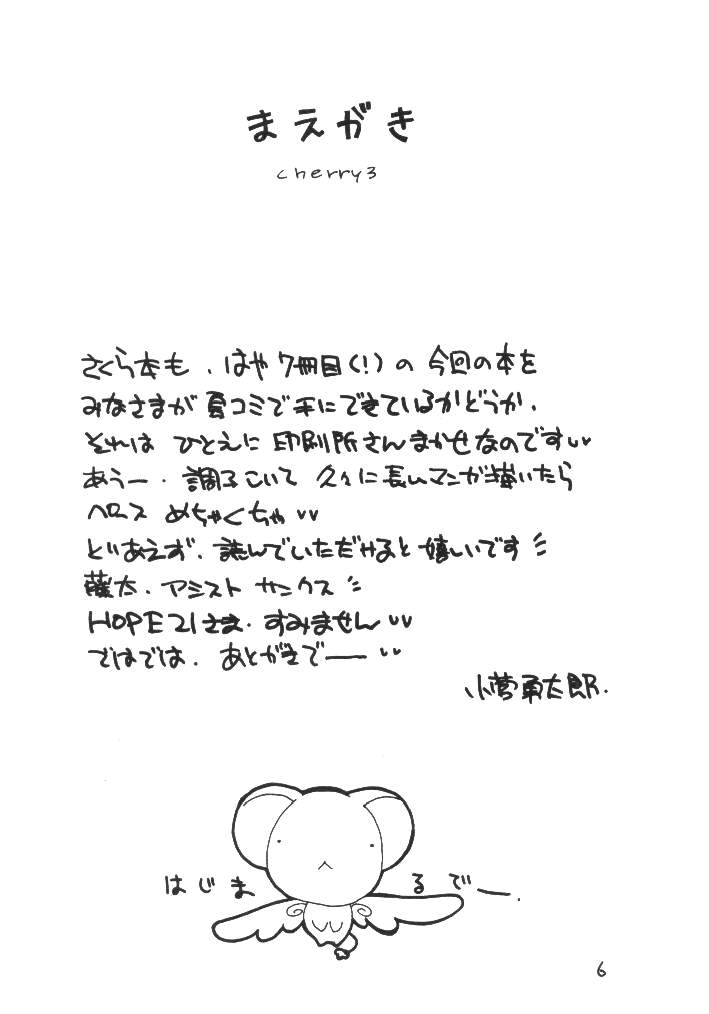 まえがき
cherry3
さくら本も、はや7冊目(!)の今回の本を
みなさまが夏コミで手にできているかどうか、
それは ひとえに 印刷所さんまかせなのです
あうー、調子こいて 久々に長いマンガ描いたら
ペース めちゃくちゃ
とりあえず、読んでいただけると嬉しいです
藤太、アシスト サンクス
HOPE21さま、すみません
ではでは、あとがきでー
小菅勇太郎.
はじまるでー.
6